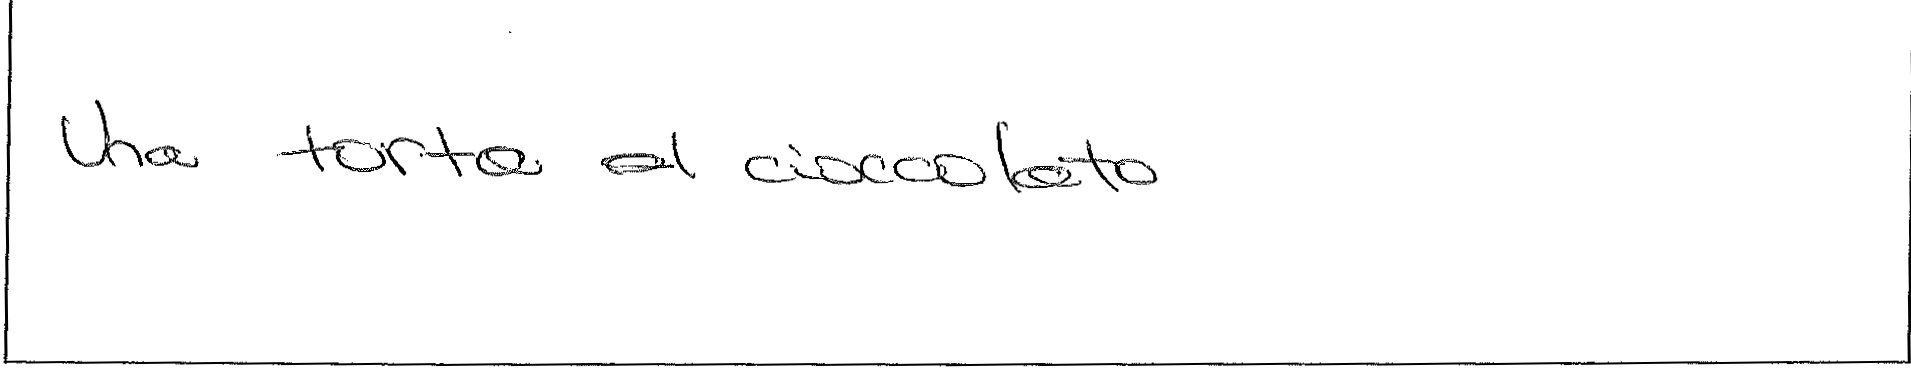 Una torta al cioccolato